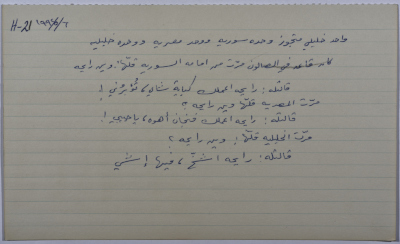 H-21 ١٩٩٤/٦
واحد خليلي متجوز وحده سوريه ووحده مصريه ووحده خليليه
كان قاعد في الصالون مرّت من امامه السوريه قلّها: وين رايحه
قالتله: رايحه اعملك كباية شاي، تُؤبرُني!
مرّت المصريه قلّها وين رايحه؟
قالتله: رايحه اعملك فنجان أهوه، يا حبيبي!
مرّت الخليليه قلّها: وين رايحه؟
قالتله: رايحه أشخّ، فيها إشي